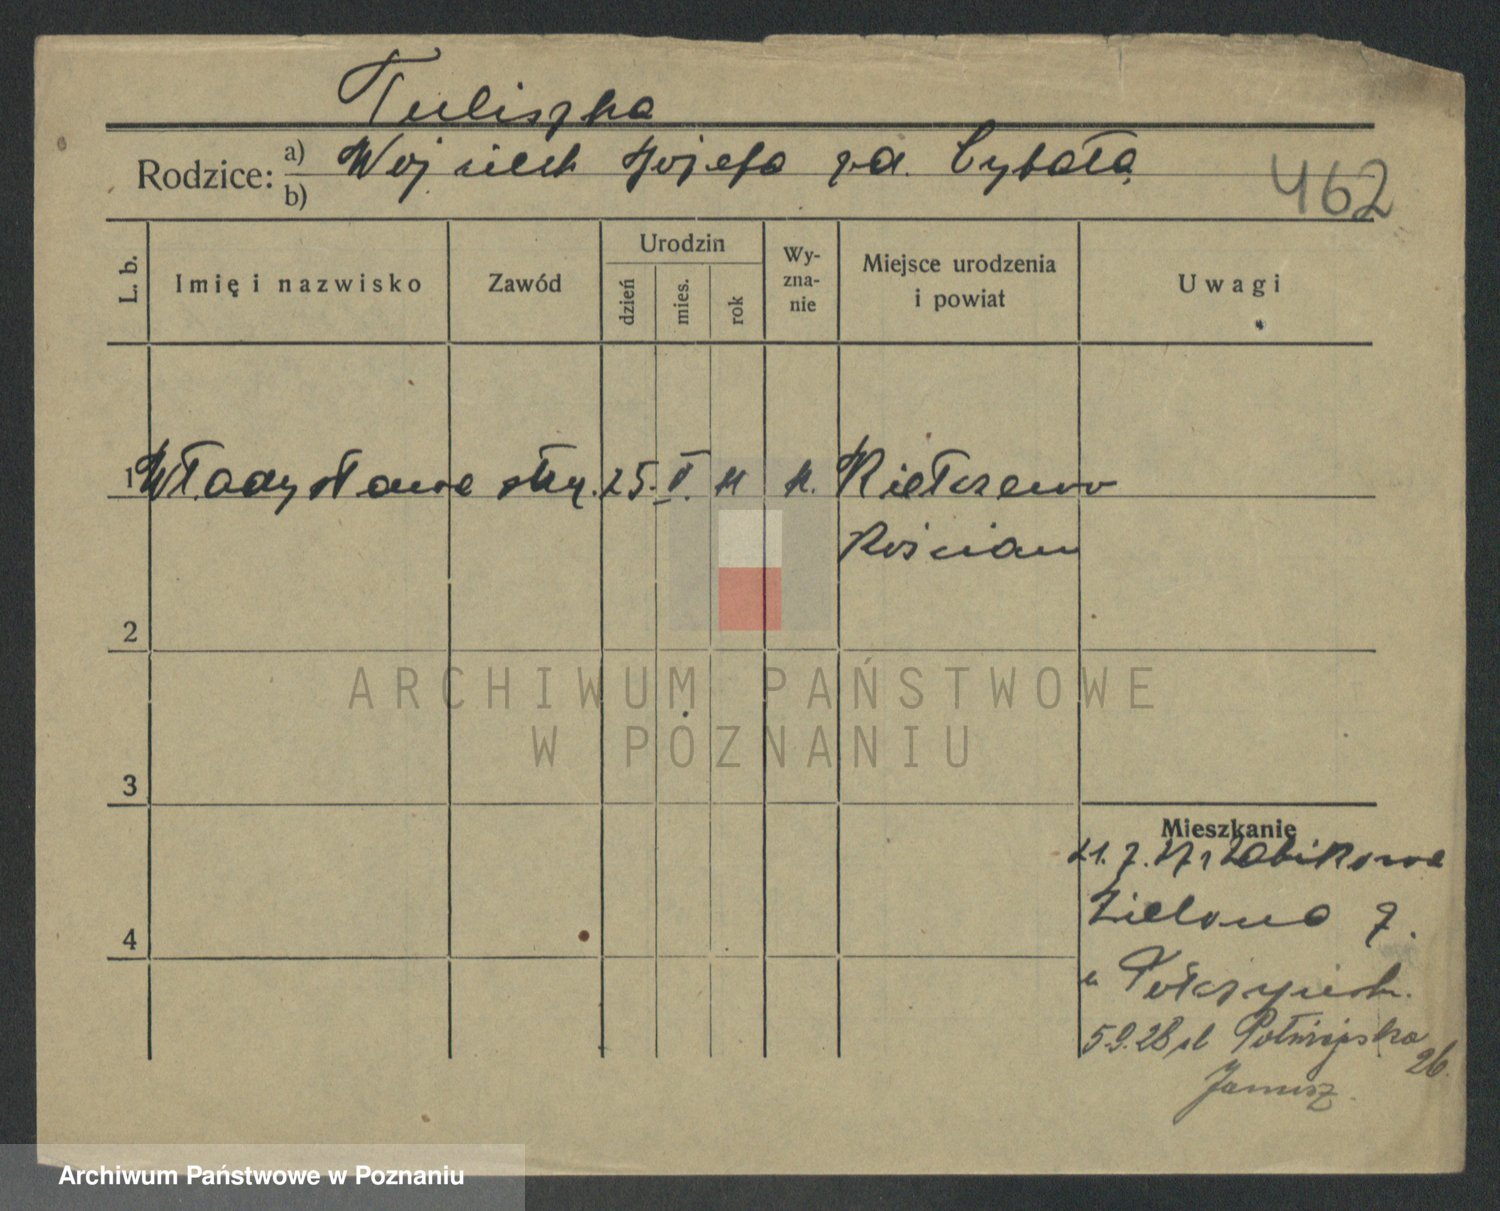 Tuliszka
Rodzice: a) Wojciech Józefa zd. Cybała
b)
462
L. b. Imię i nazwisko Zawód Urodzin dzień mies. rok Wy-zna-nie Miejsce urodzenia i powiat Uwagi
1 Władysława służ. 25. V. 11 k. Kiełczewo
Kościan
2
ARCHIWUM PAŃSTWOWE
W POZNANIU
3
Mieszkanie
21. 7. 27 z Żabikowa
Zielona 7.
u
4
5.9.28 ul Półwiejska 26.
Janusz.
Archiwum Państwowe w Poznaniu